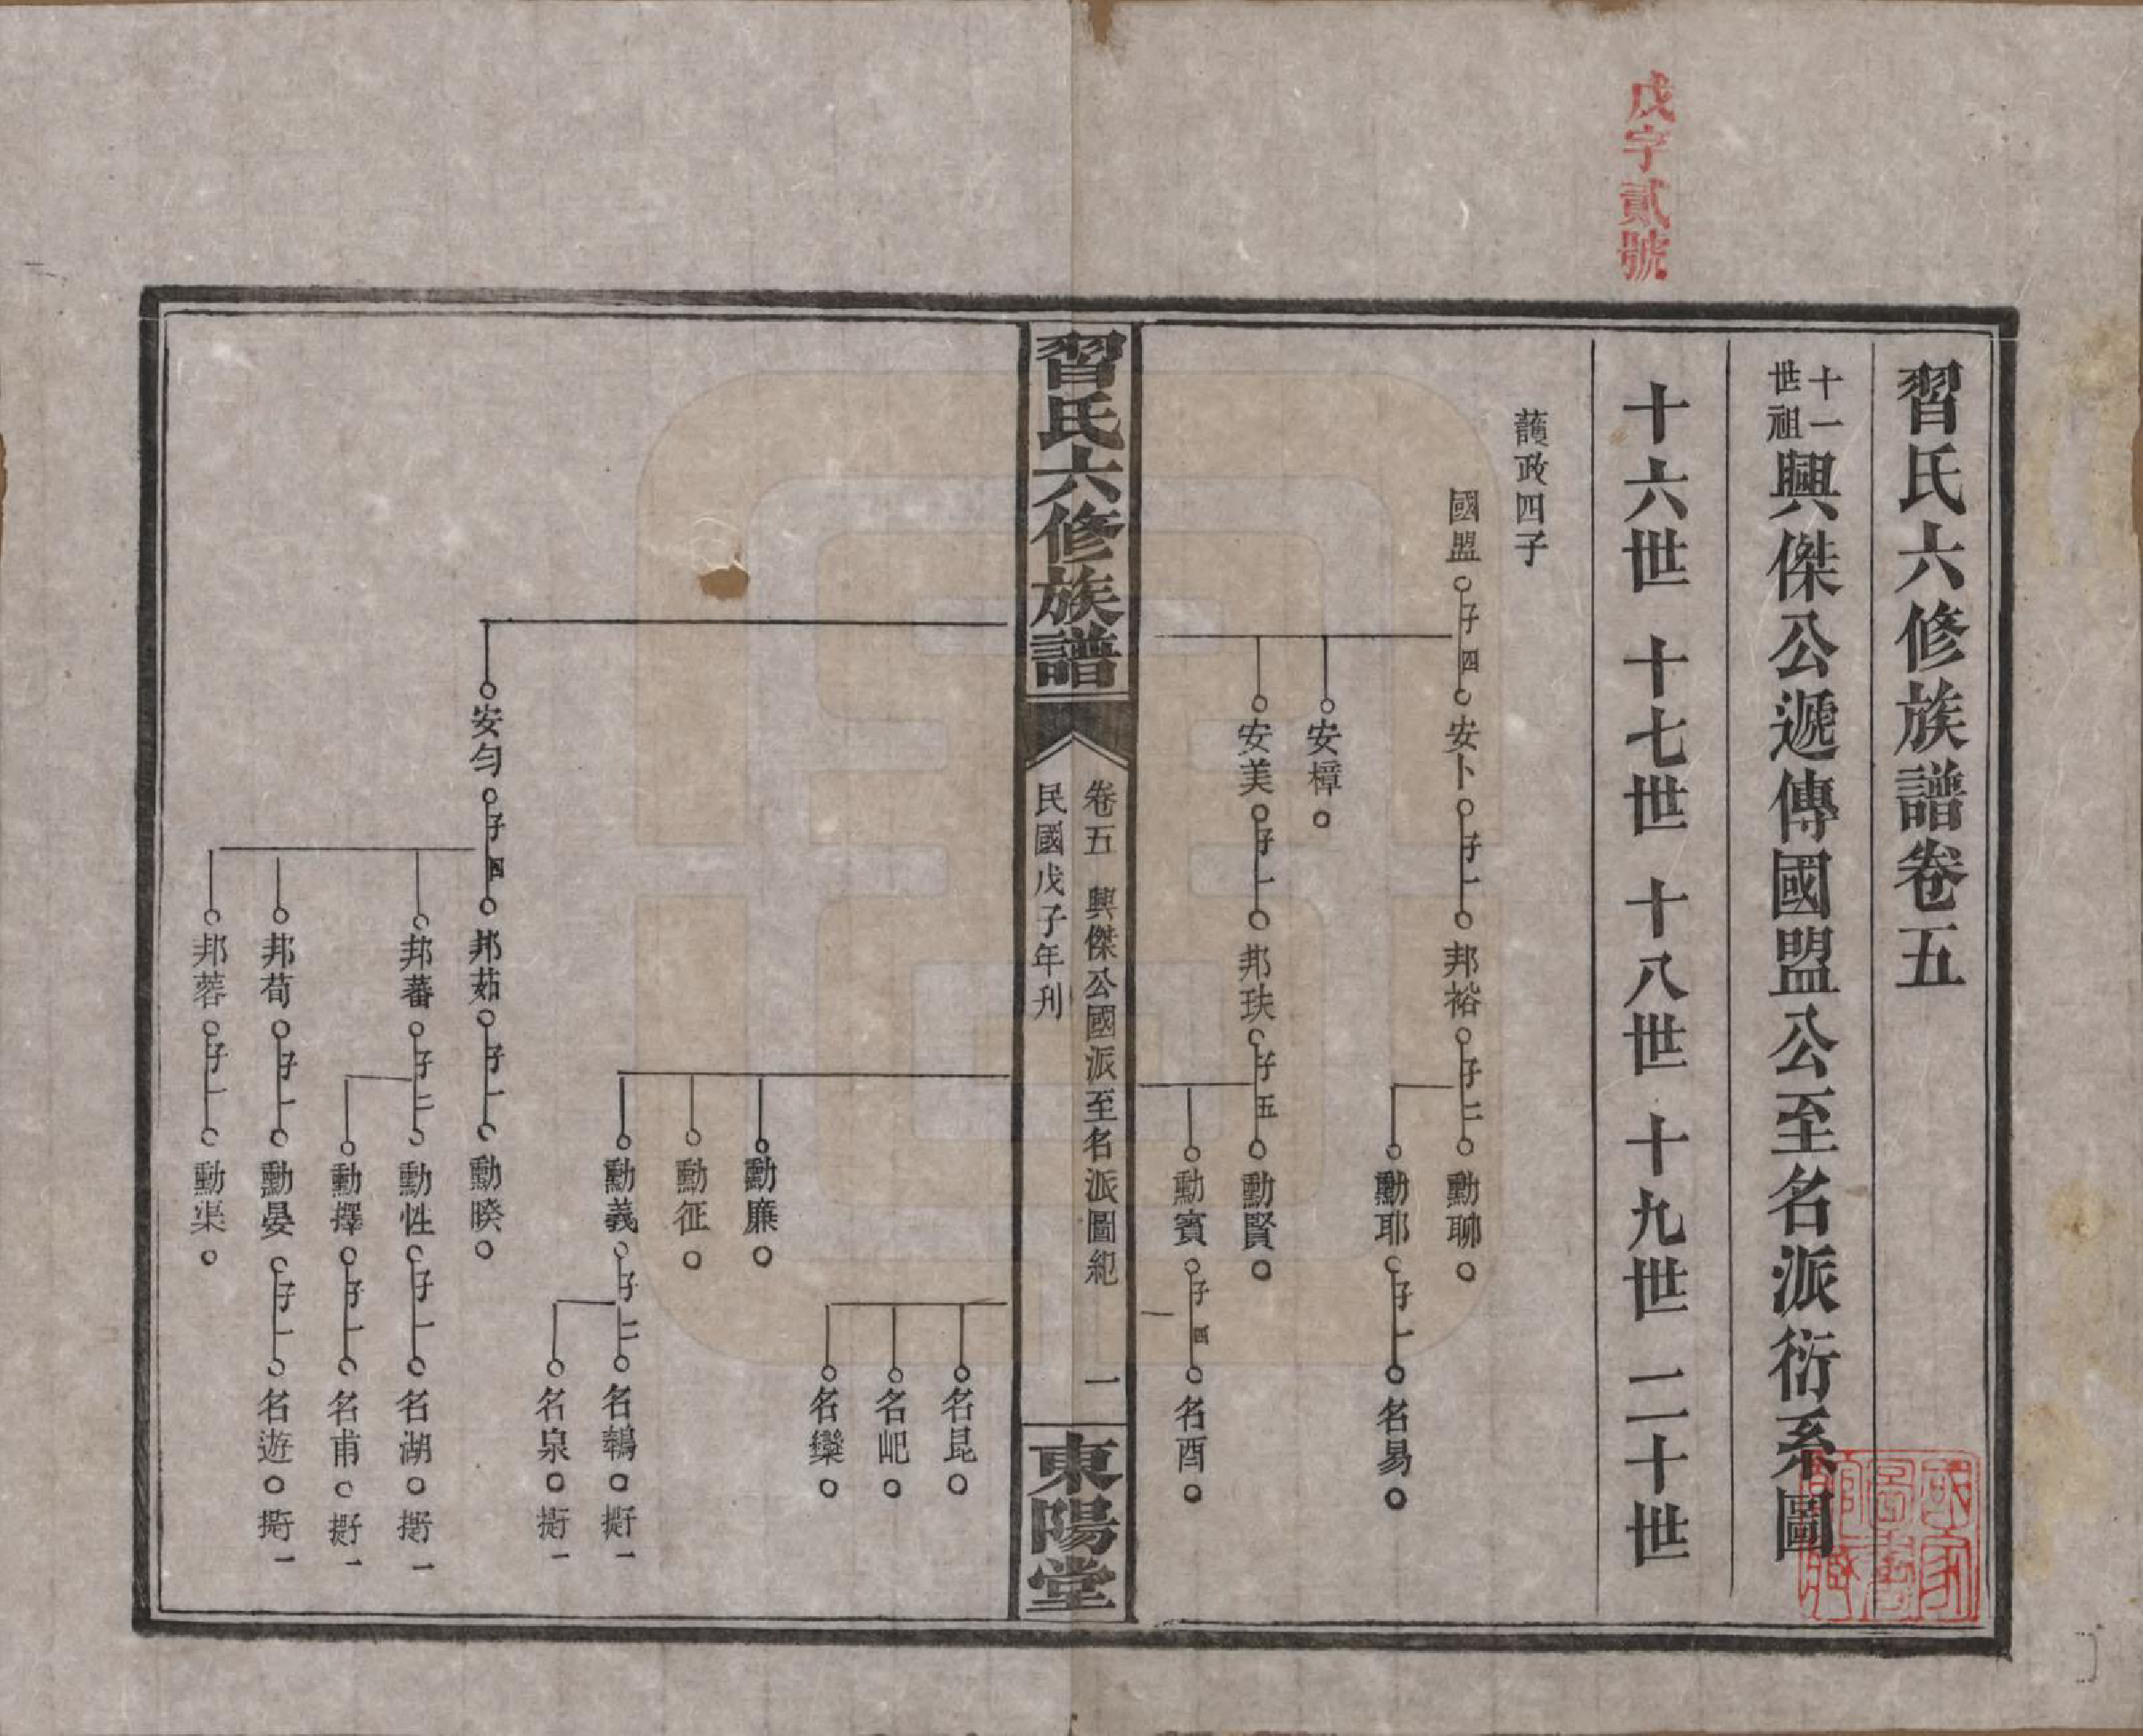 戊字貳號
習氏六修族譜卷五
十一世祖興傑公遞傳國盟公至名派衍系圖
十六世 十七世 十八世 十九世 二十世
護政四子
國盟 子四 安卜 子一 邦裕 子二 勳聊
勳耶 子一 名易
安樟
安美 子一 邦玞 子五 勳賢
勳賓 子四 名酉
習氏六修族譜
卷五 興傑公國派至名派圖紀 一
民國戊子年刊
東陽堂
名昆
名屺
名欒
勳廉
勳征
勳義 子二 名鶴 撫子一
名泉 撫子一
安勻 子四 邦茹 子一 勳睽
邦蕃 子二 勳性 子一 名湖 撫子一
勳擇 子一 名甫 撫子一
邦荀 子一 勳晏 子一 名遊 撫子一
邦蓉 子一 勳渠
國家圖書館藏